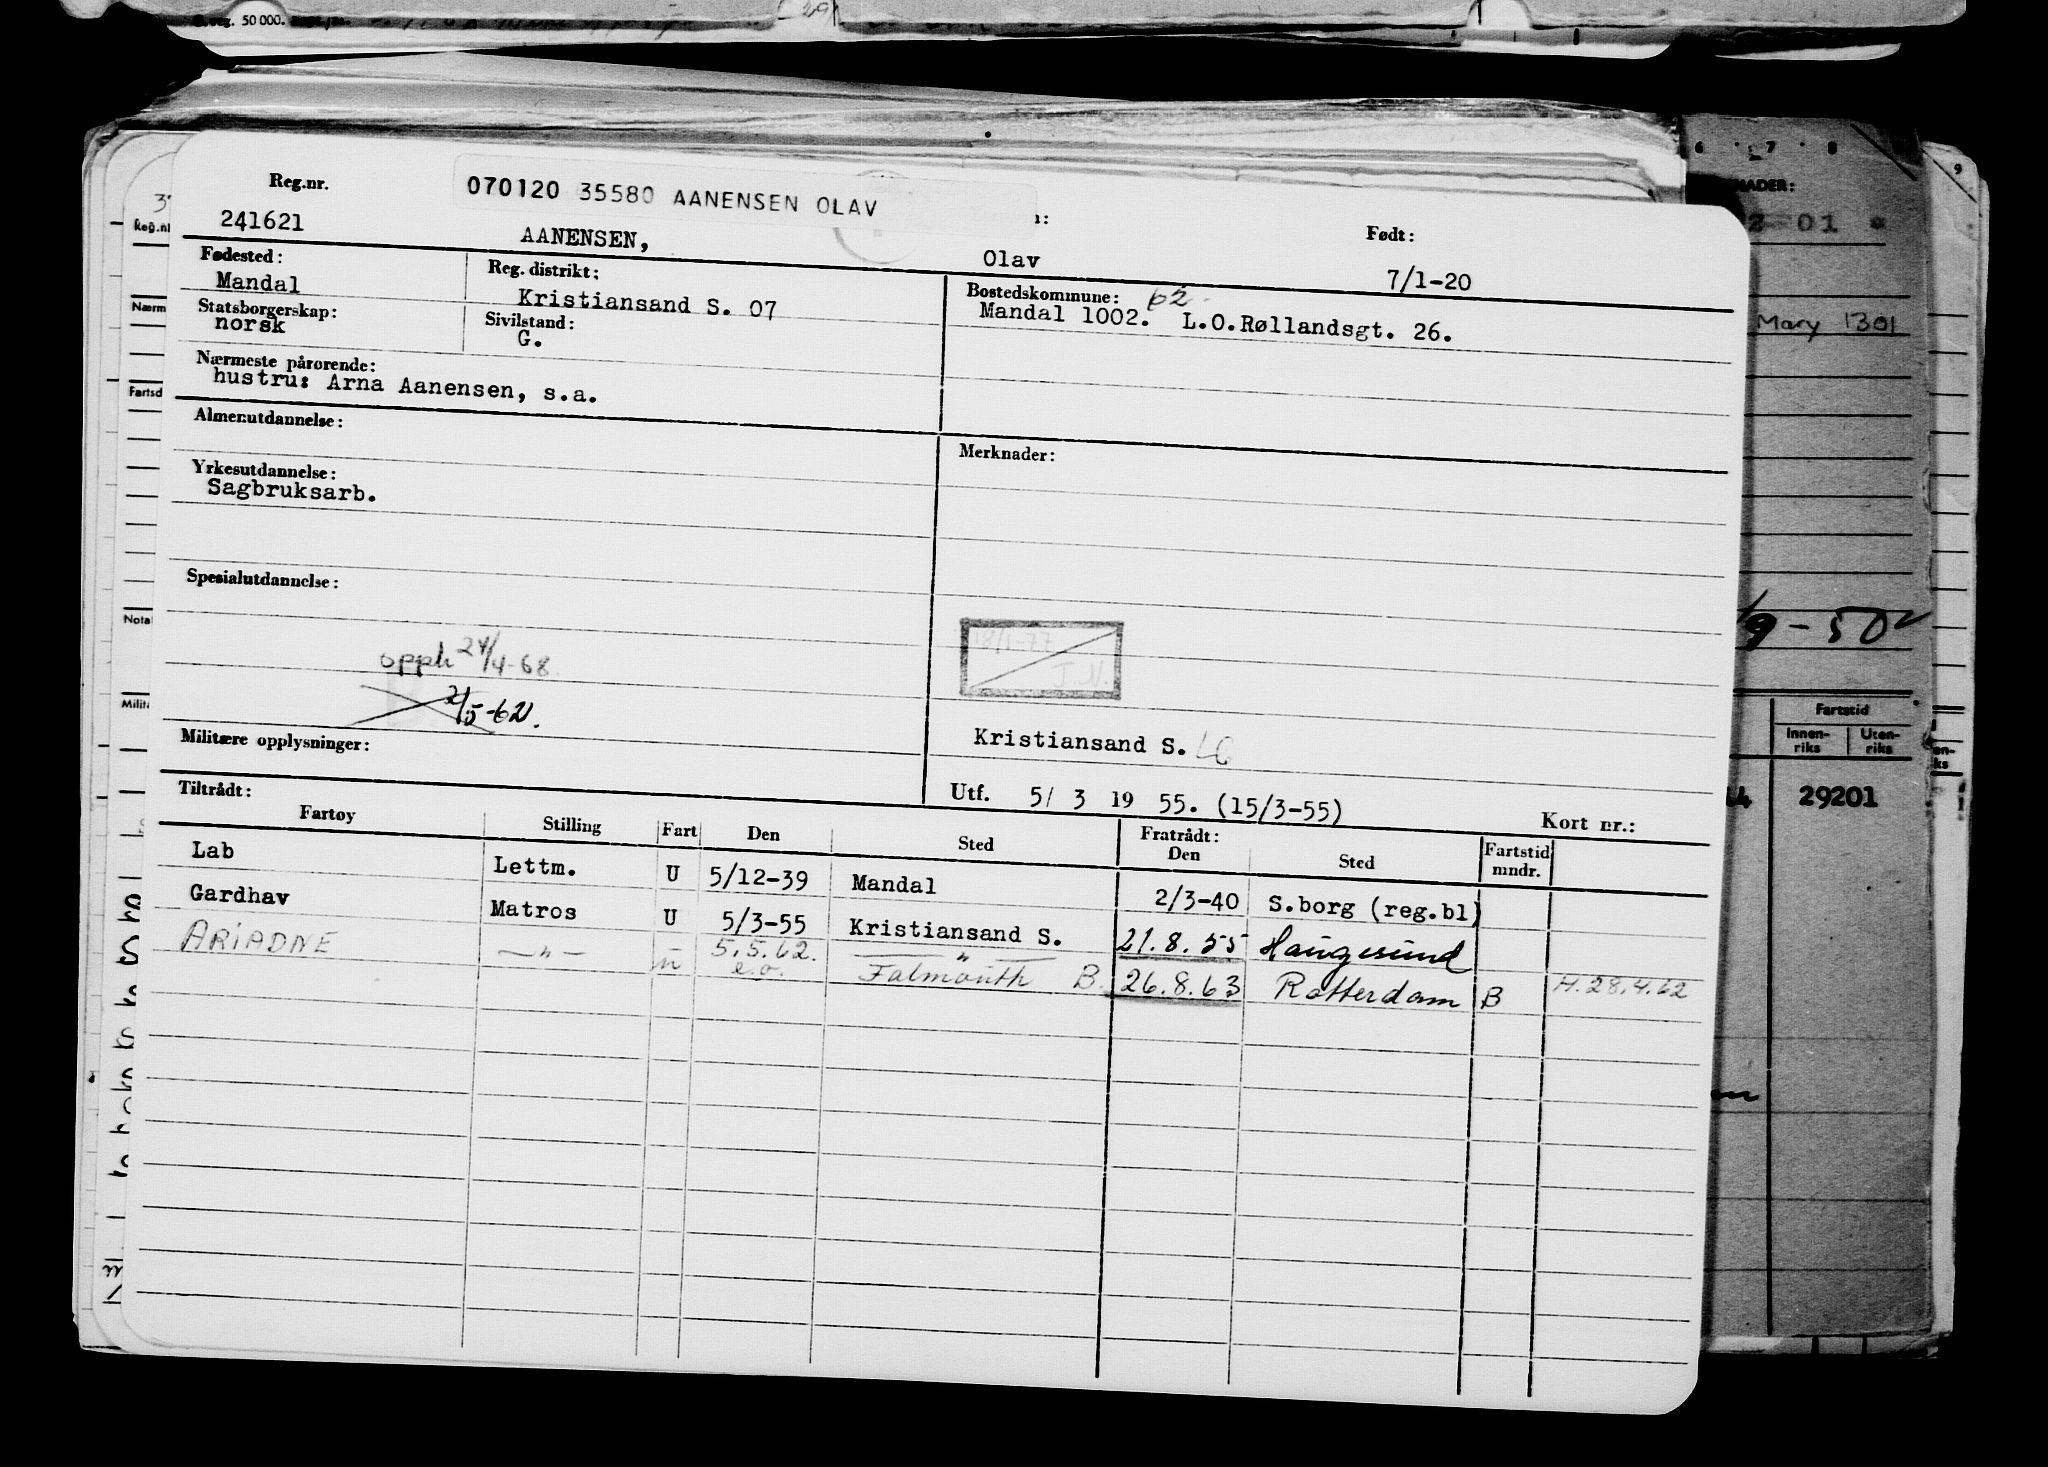 reg. 50 000.
070120 35580 AANENSEN OLAV
Reg.nr.
241621
AANENSEN,
Olav
Født:
7/1-20
Fødested:
Mandal
Reg. distrikt:
Kristiansand S. 07
Bostedskommune: 62
Mandal 1002. L.O.Røllandsgt. 26.
Statsborgerskap:
norsk
Sivilstand:
G.
Nærmeste pårørende:
hustru: Arna Aanensen, s.a.
Almenutdannelse:
Merknader:
Yrkesutdannelse:
Sagbruksarb.
Spesialutdannelse:
18/1-77
J.N.
opph 24/4-68
2/5-62.
Militære opplysninger:
Kristiansand S.
Utf. 5/ 3 19 55. (15/3-55)
Kort nr.:
Tiltrådt:
Fartøy Stilling Fart Den Sted Fratrådt: Den Sted Fartstid mndr.
Lab Lettm. U 5/12-39 Mandal 2/3-40 S.borg (reg.bl)
Gardhav Matros U 5/3-55 Kristiansand S. 21.8.55 Haugesund
ARIADNE —"— —"— 5.5.62. —"—
e.o. Falmouth B. 26.8.63 Rotterdam B H.28.4.62
Reg.nr
Nærm
Fartsd
Notat
Milita
6 7 8
NADER:
2 01 *
Mary 1301
9-50
Fartstid
Innen-
riks
Uten-
riks
29201
9
en-
ks